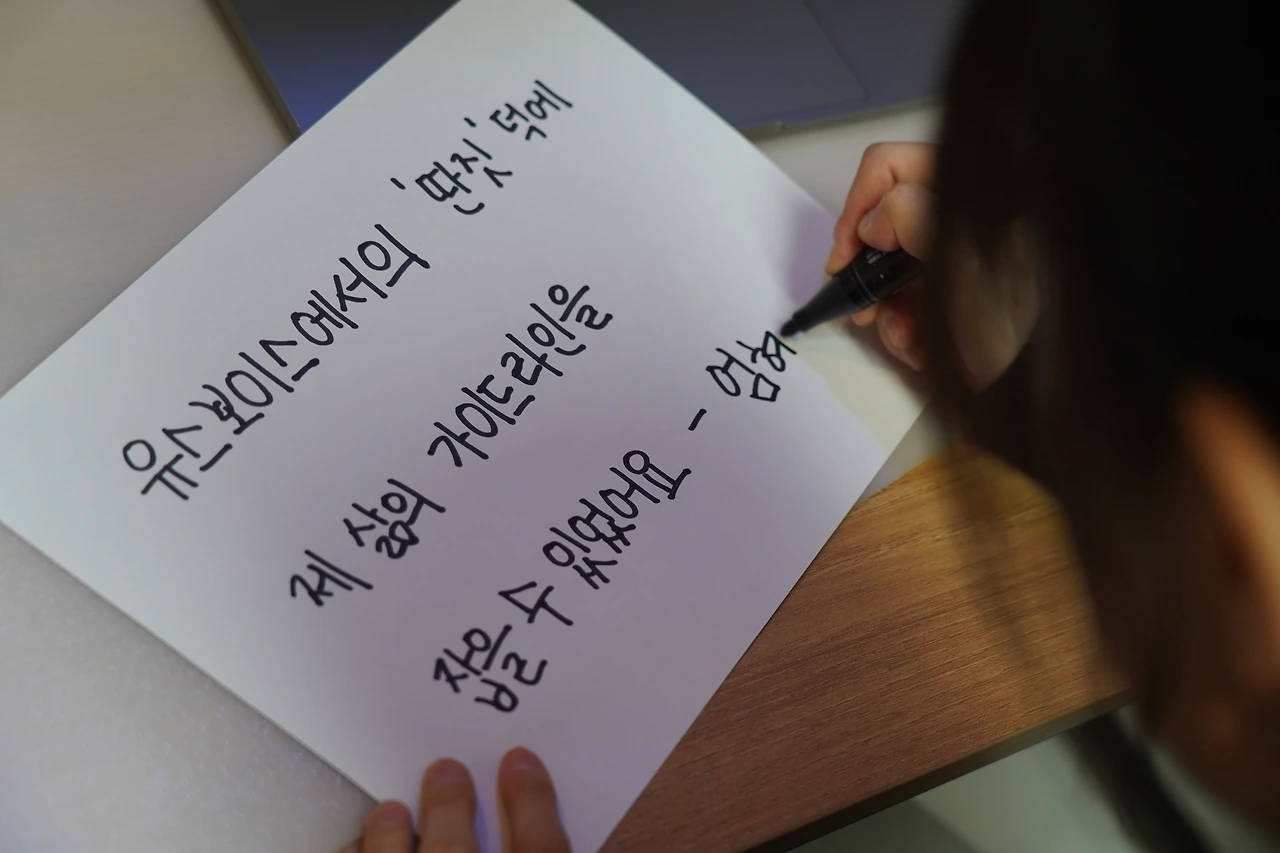 유스보이스에서의 '딴짓' 덕에
제 삶의 가이드라인을
잡을 수 있었어요 - 엄혀